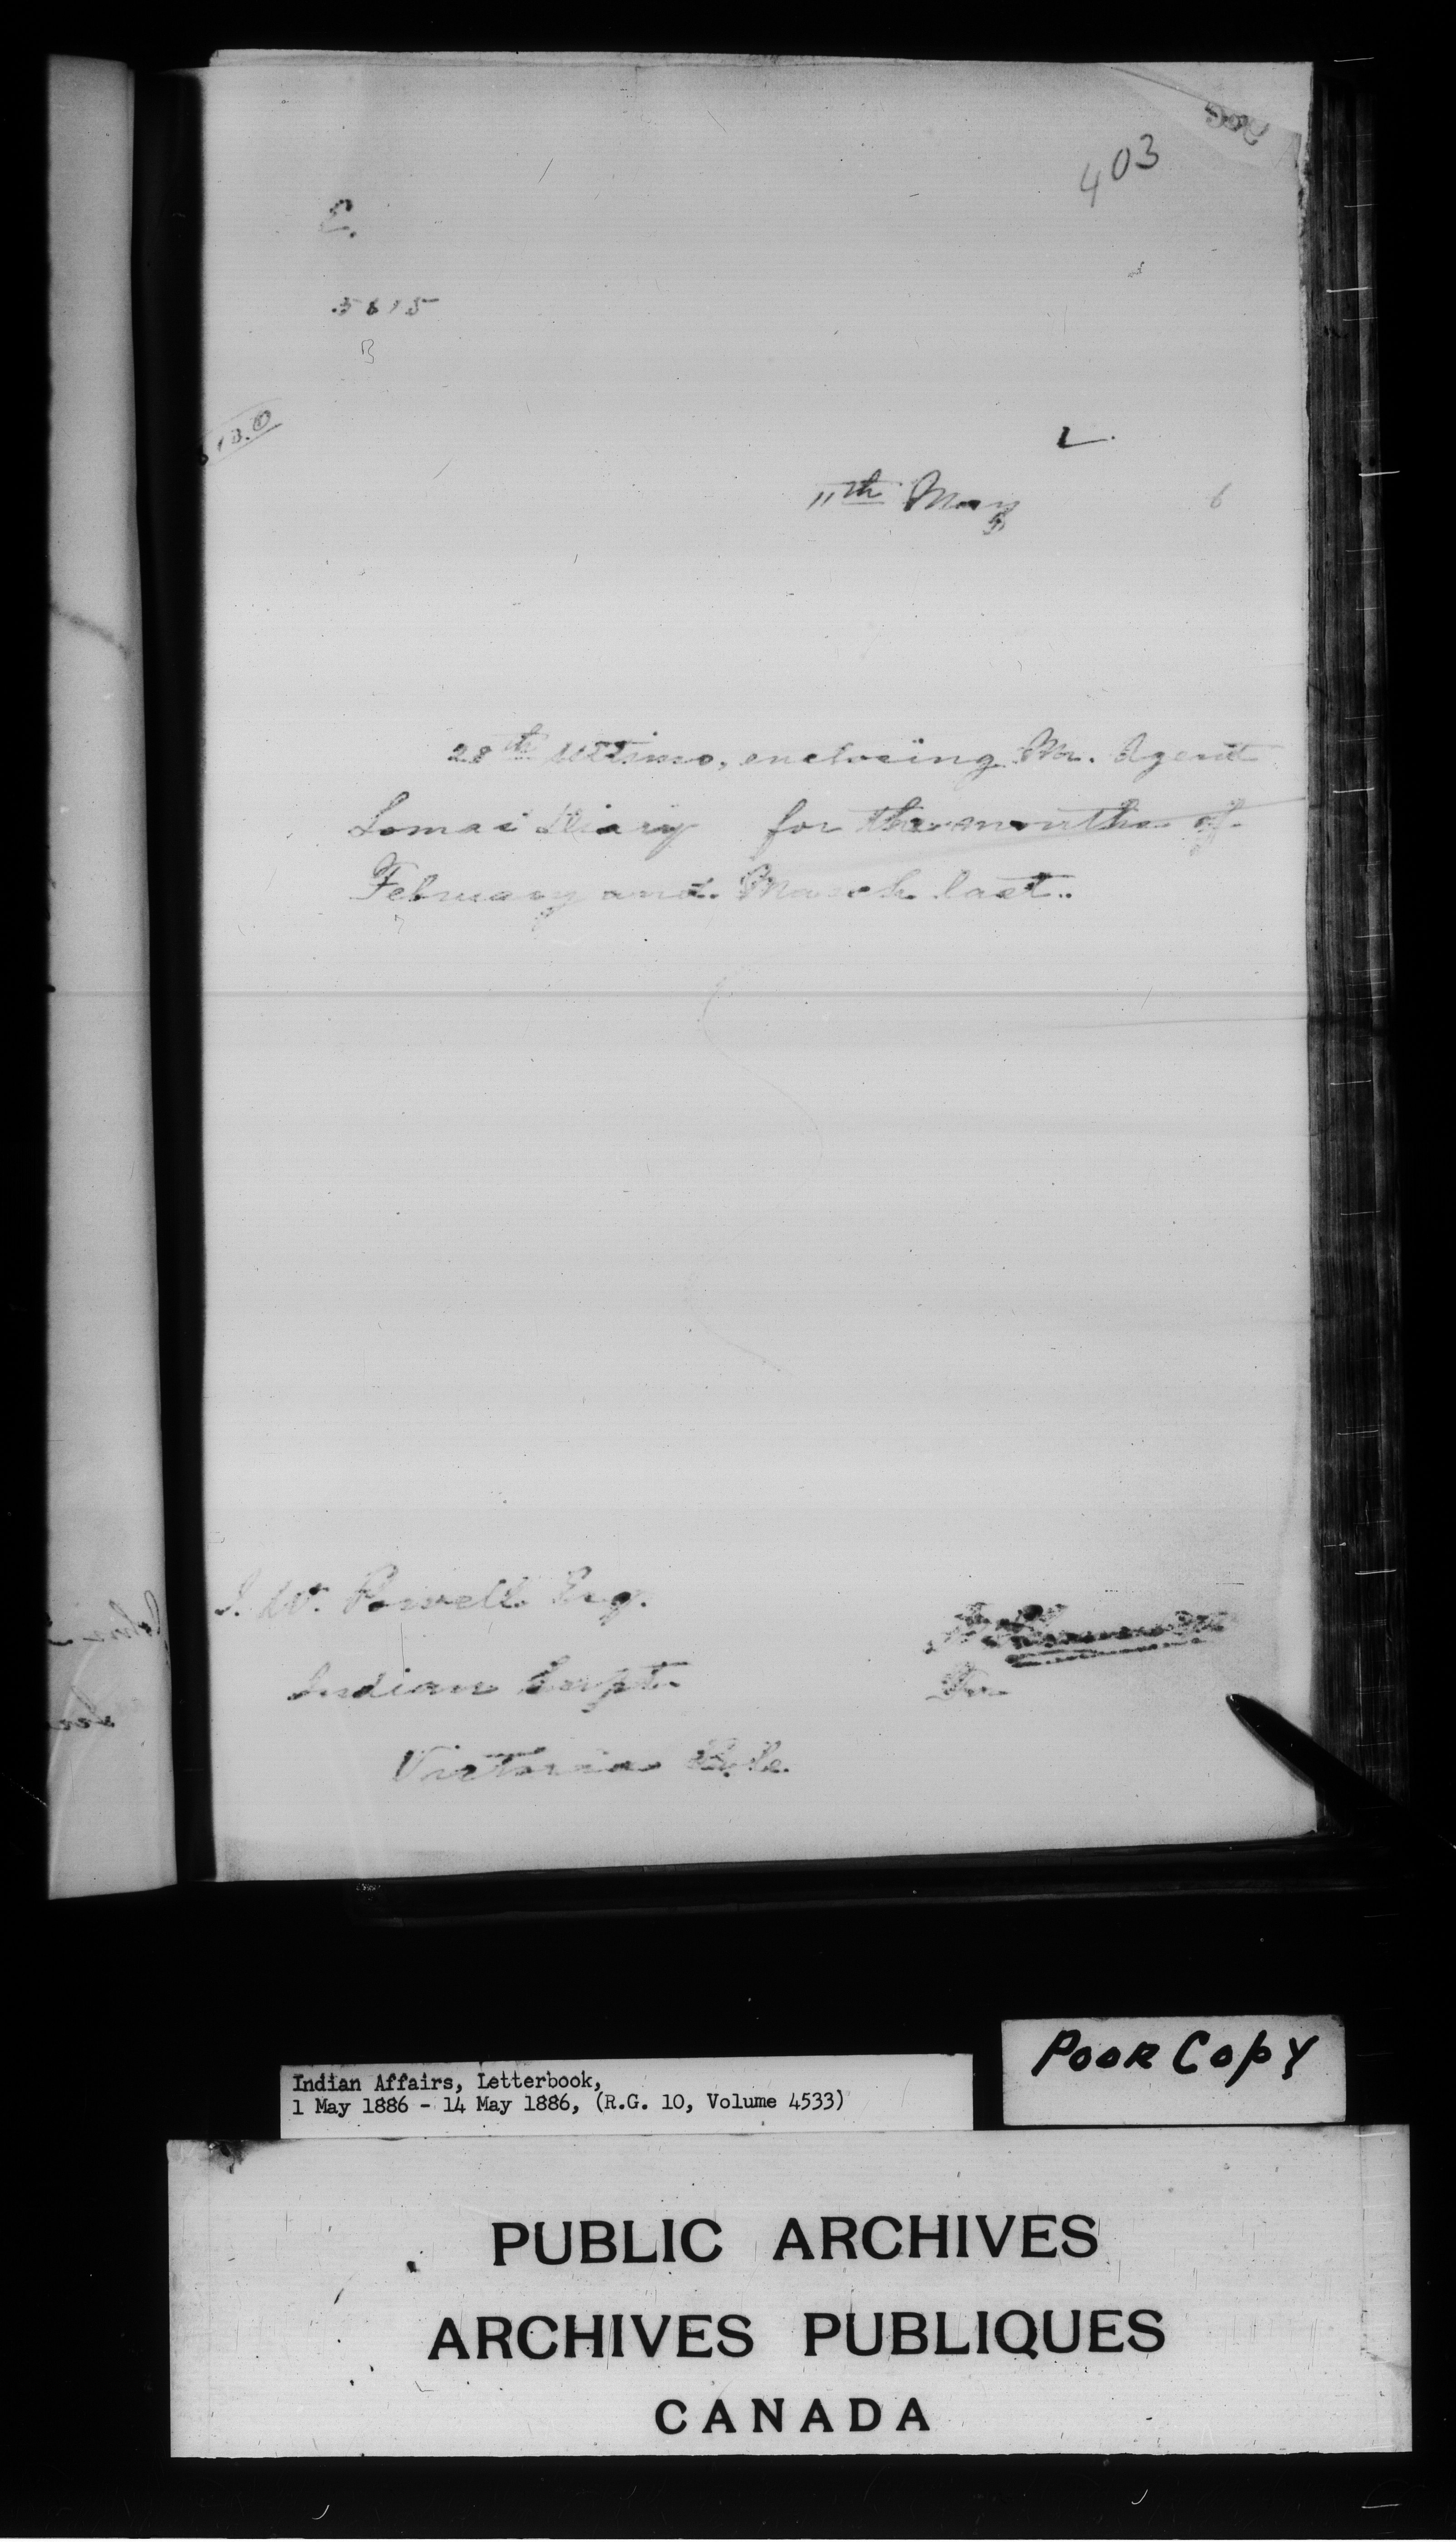 403
E.
5615
B
L.
11th May 6
28th Ultimo, enclosing Mr. Agent
Lomas Diary for the months of
February and March last.
I. W. Powell Esq.
Indian Supt.
Victoria B.C.
Poor Copy
Indian Affairs, Letterbook,
1 May 1886 - 14 May 1886, (R.G. 10, Volume 4533)
PUBLIC ARCHIVES
ARCHIVES PUBLIQUES
CANADA